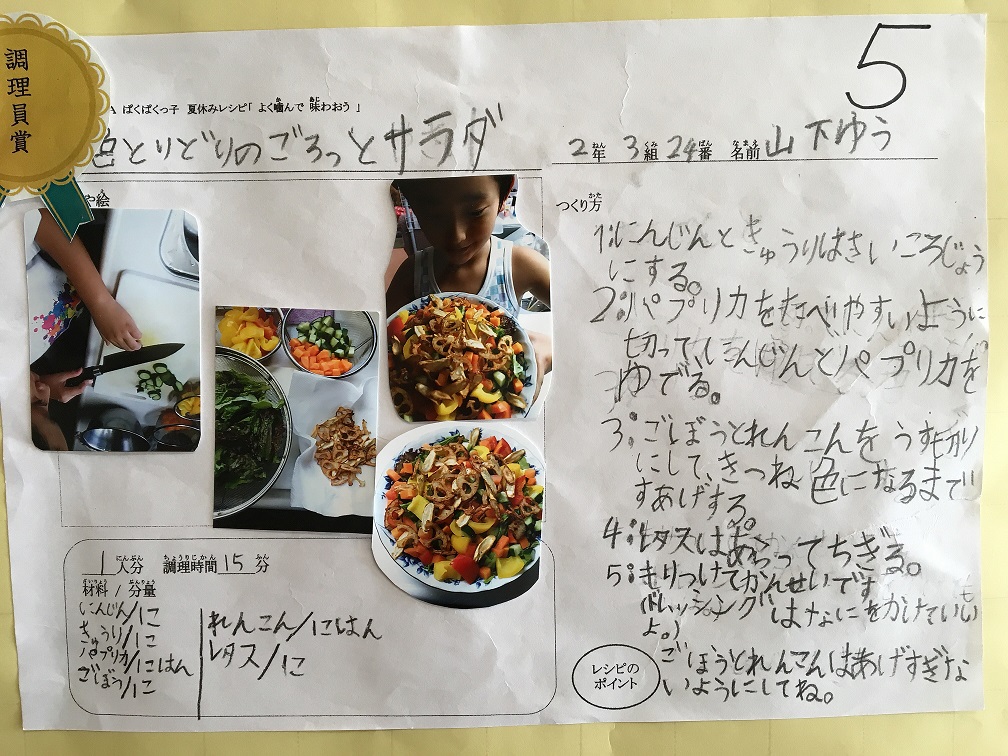 調理員賞
5
ぱくぱくっ子 夏休みレシピ「よく噛んで 味わおう」
色とりどりのごろっとサラダ
2年 3組 24番 名前 山下ゆう
や絵
つくり方
1:にんじんときゅうりはさいころじょう
にする。
2:パプリカをたべやすいように
切って、にんじんとパプリカを
ゆでる。
3:ごぼうとれんこんをうす切り
にして、きつね色になるまで
すあげする。
4:レタスはあらってちぎる。
5:もりつけてかんせいです
(ドレッシングはなにをかけてもいい
よ。)
レシピの
ポイント
ごぼうとれんこんはあげすぎな
いようにしてね。
1人分 調理時間 15分
材料/分量
にんじん/に
きゅうり/に
パプリカ/にはん
ごぼう/に
れんこん/にはん
レタス/に